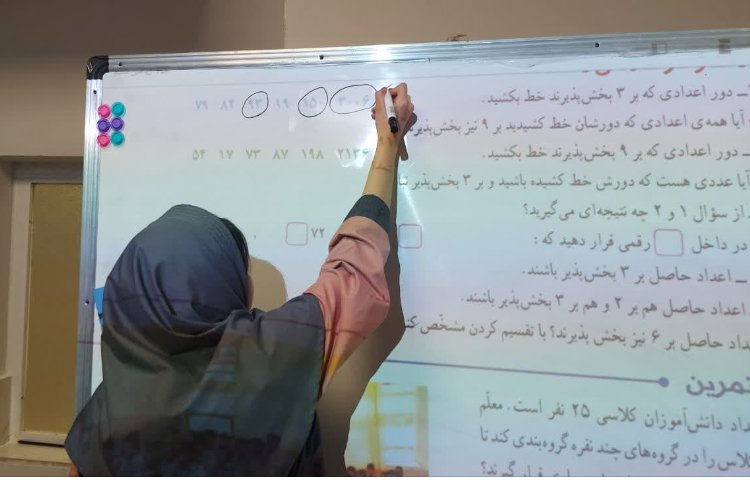 ـ دور اعدادی که بر ۳ بخش‌پذیرند خط بکشید.
۳۰۰۶ ۱۵۰ ۱۹ ۹۳ ۸۴ ۷۹
آیا همه‌ی اعدادی که دورشان خط کشیدید بر ۹ نیز بخش‌پذیرند
ـ دور اعدادی که بر ۹ بخش‌پذیرند خط بکشید.
۲۱۳۶ ۱۹۸ ۸۷ ۷۳ ۱۷ ۵۴
آیا عددی هست که دورش خط کشیده باشید و بر ۳ بخش‌پذیر
از سؤال ۱ و ۲ چه نتیجه‌ای می‌گیرید؟
در داخل □ رقمی قرار دهید که :
□ ۷۲ □
ـ اعداد حاصل بر ۳ بخش‌پذیر باشند.
اعداد حاصل هم بر ۲ و هم بر ۳ بخش‌پذیر باشند.
داد حاصل بر ۶ نیز بخش پذیرند؟ با تقسیم کردن مشخّص کن
تمرین
داد دانش‌آموزان کلاسی ۲۵ نفر است. معلّم
لاس را در گروه‌های چند نفره گروه‌بندی کند تا
قرار گیرند؟